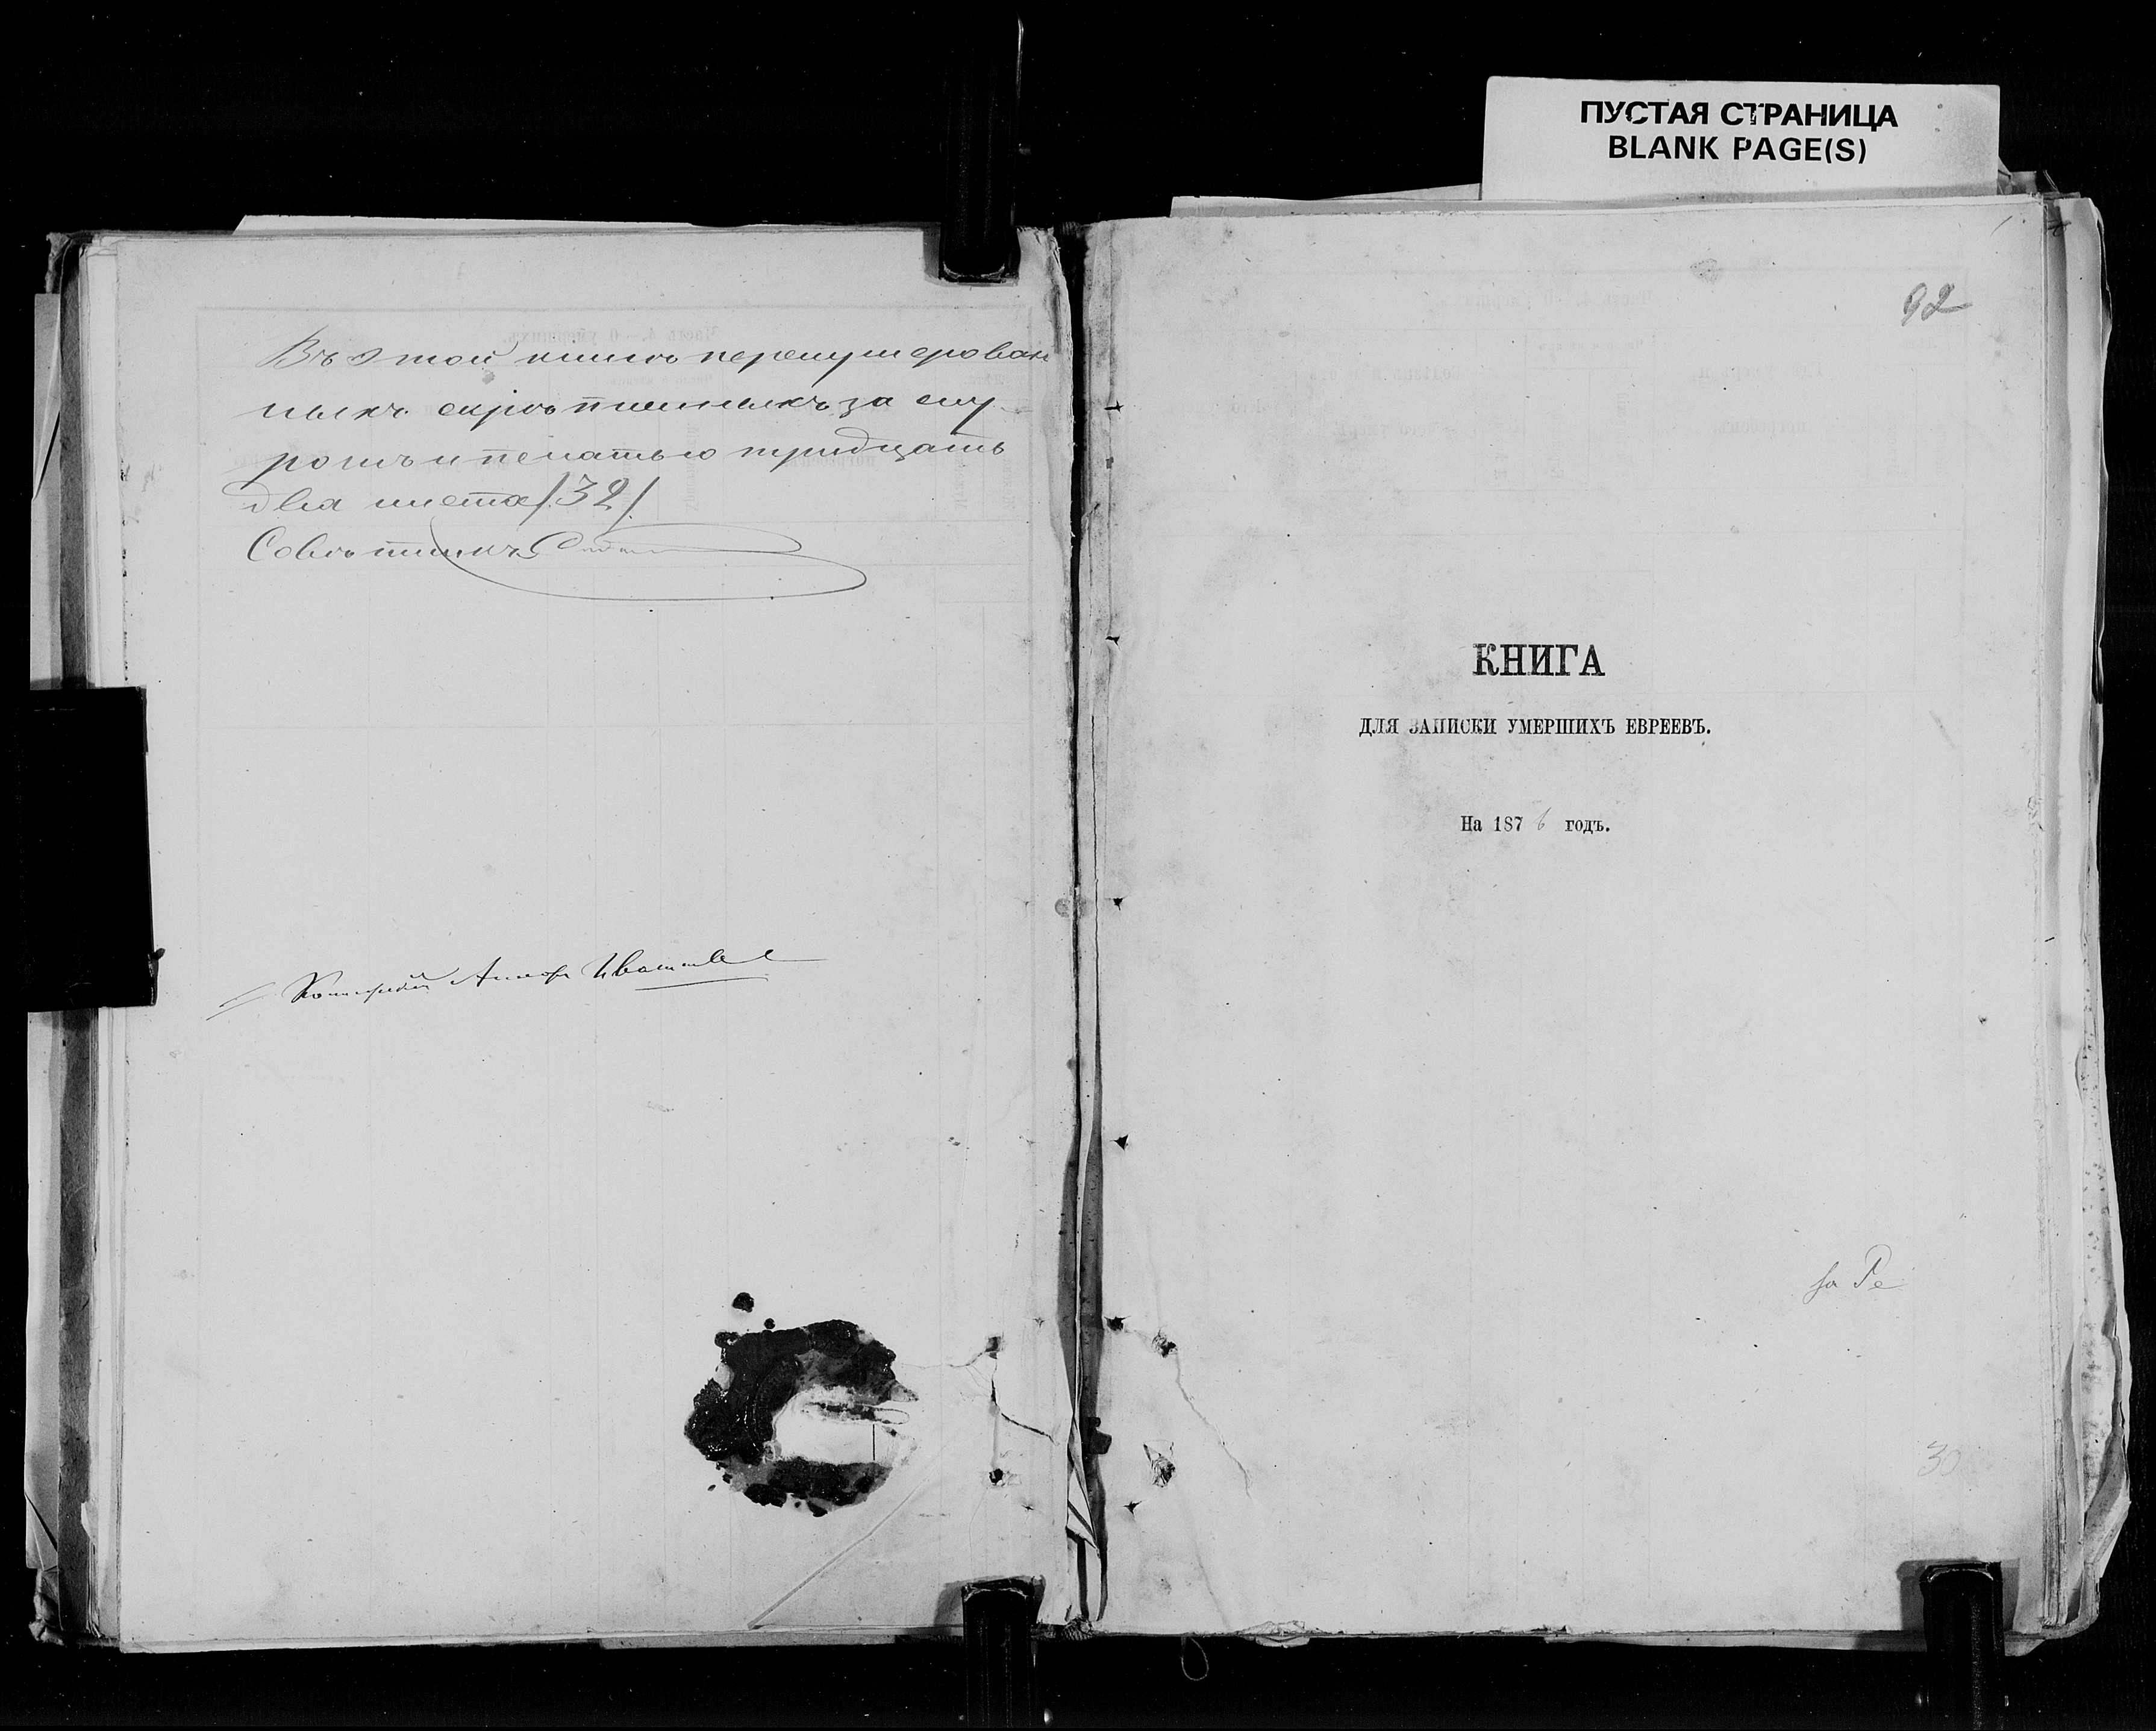 ПУСТАЯ СТРАНИЦА
BLANK PAGE(S)
Въ этой книгѣ перенумерован
ныхъ скрѣпленныхъ за шну
ромъ и печатью тридцать
два листа /32/.
Совѣтникъ
92
КНИГА
ДЛЯ ЗАПИСКИ УМЕРШИХЪ ЕВРЕЕВЪ.
На 1876 годъ.
за Ре
30